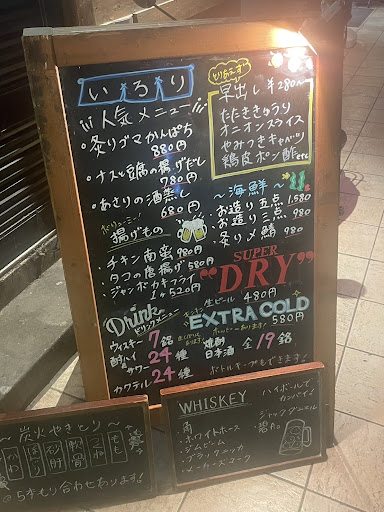 いろり
人気メニュー
・炙りゴマかんぱち
880円
・ナスと豆腐の揚げだし
780円
・あさりの酒蒸し
680円
ボリューミー!
揚げもの
・チキン南蛮 980円
・タコの唐揚げ 580円
・ジャンボカキフライ
1ヶ520円
とりあえず
早出し ¥280〜
たたききゅうり
オニオンスライス
やみつきキャベツ
鶏皮ポン酢etc
〜海鮮〜
お造り五点 1.580
お造り三点 980
炙り〆鯖 980
SUPER
"DRY"
生ビール 480円
キンキン
EXTRA COLD
580円
Drink
ドリンクメニュー
ウィスキー 7銘
酎ハイ
サワー 24種
カクテル 24種
ホッピーあります!
焼酎
日本酒 全19銘
ボトルキープもできます!
〜炭火やきとり〜
もも
つくね
軟骨
砂肝
@5本もり合わせあります!
WHISKEY
・角
・ホワイトホース
・ジムビーム
・ブラックニッカ
・メーカーズマーク
ハイボールで
カンパイ!
・ジャックダニエル